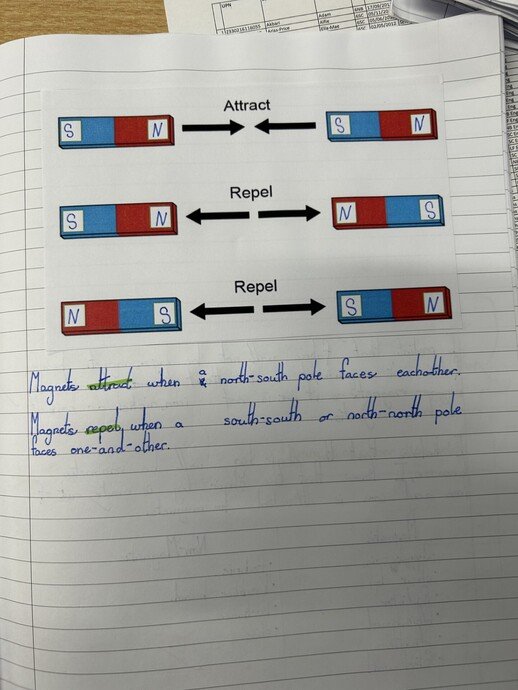 UPN
Adam
Akbari
Alfie
Arias-Price
Ella-Mae
Attract
S N S N
Repel
S N N S
Repel
N S S N
Magnets attract when a north-south pole faces eachother.
Magnets repel when a south-south or north-north pole
faces one-and-other.